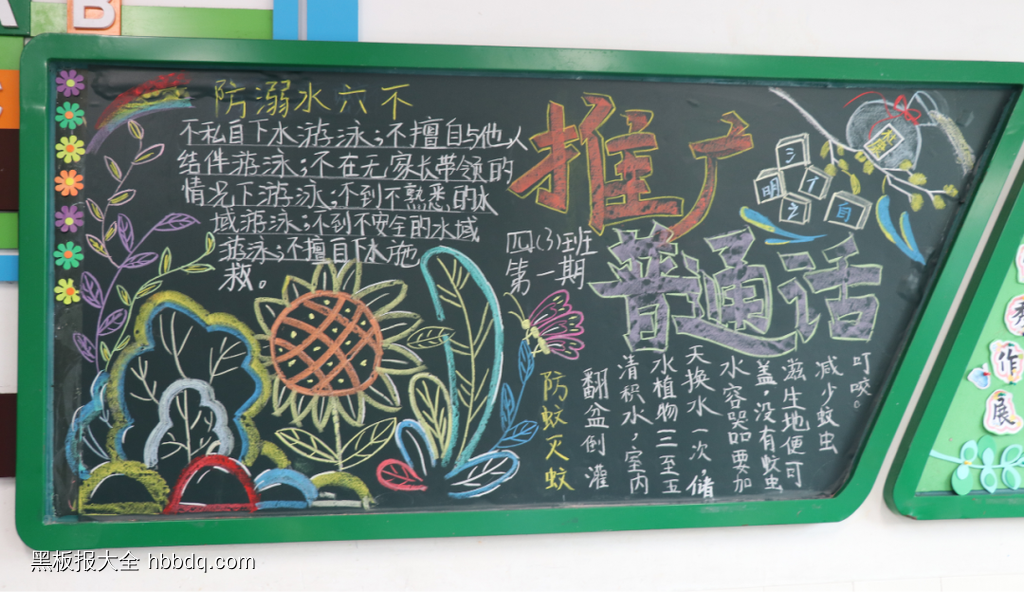 B
防溺水六不
不私自下水游泳;不擅自与他人
结伴游泳;不在无家长带领的
情况下游泳;不到不熟悉的水
域游泳;不到不安全的水域
游泳;不擅自下水施
救。
推广
普通话
四(3)班
第一期
防蚊灭蚊
翻盆倒灌
清积水,室内
水植物(三至五
天换水一次,储
水容器如要加
盖,没有蚊虫
滋生地便可
减少蚊虫
叮咬。
作
展
黑板报大全 hbbdq.com